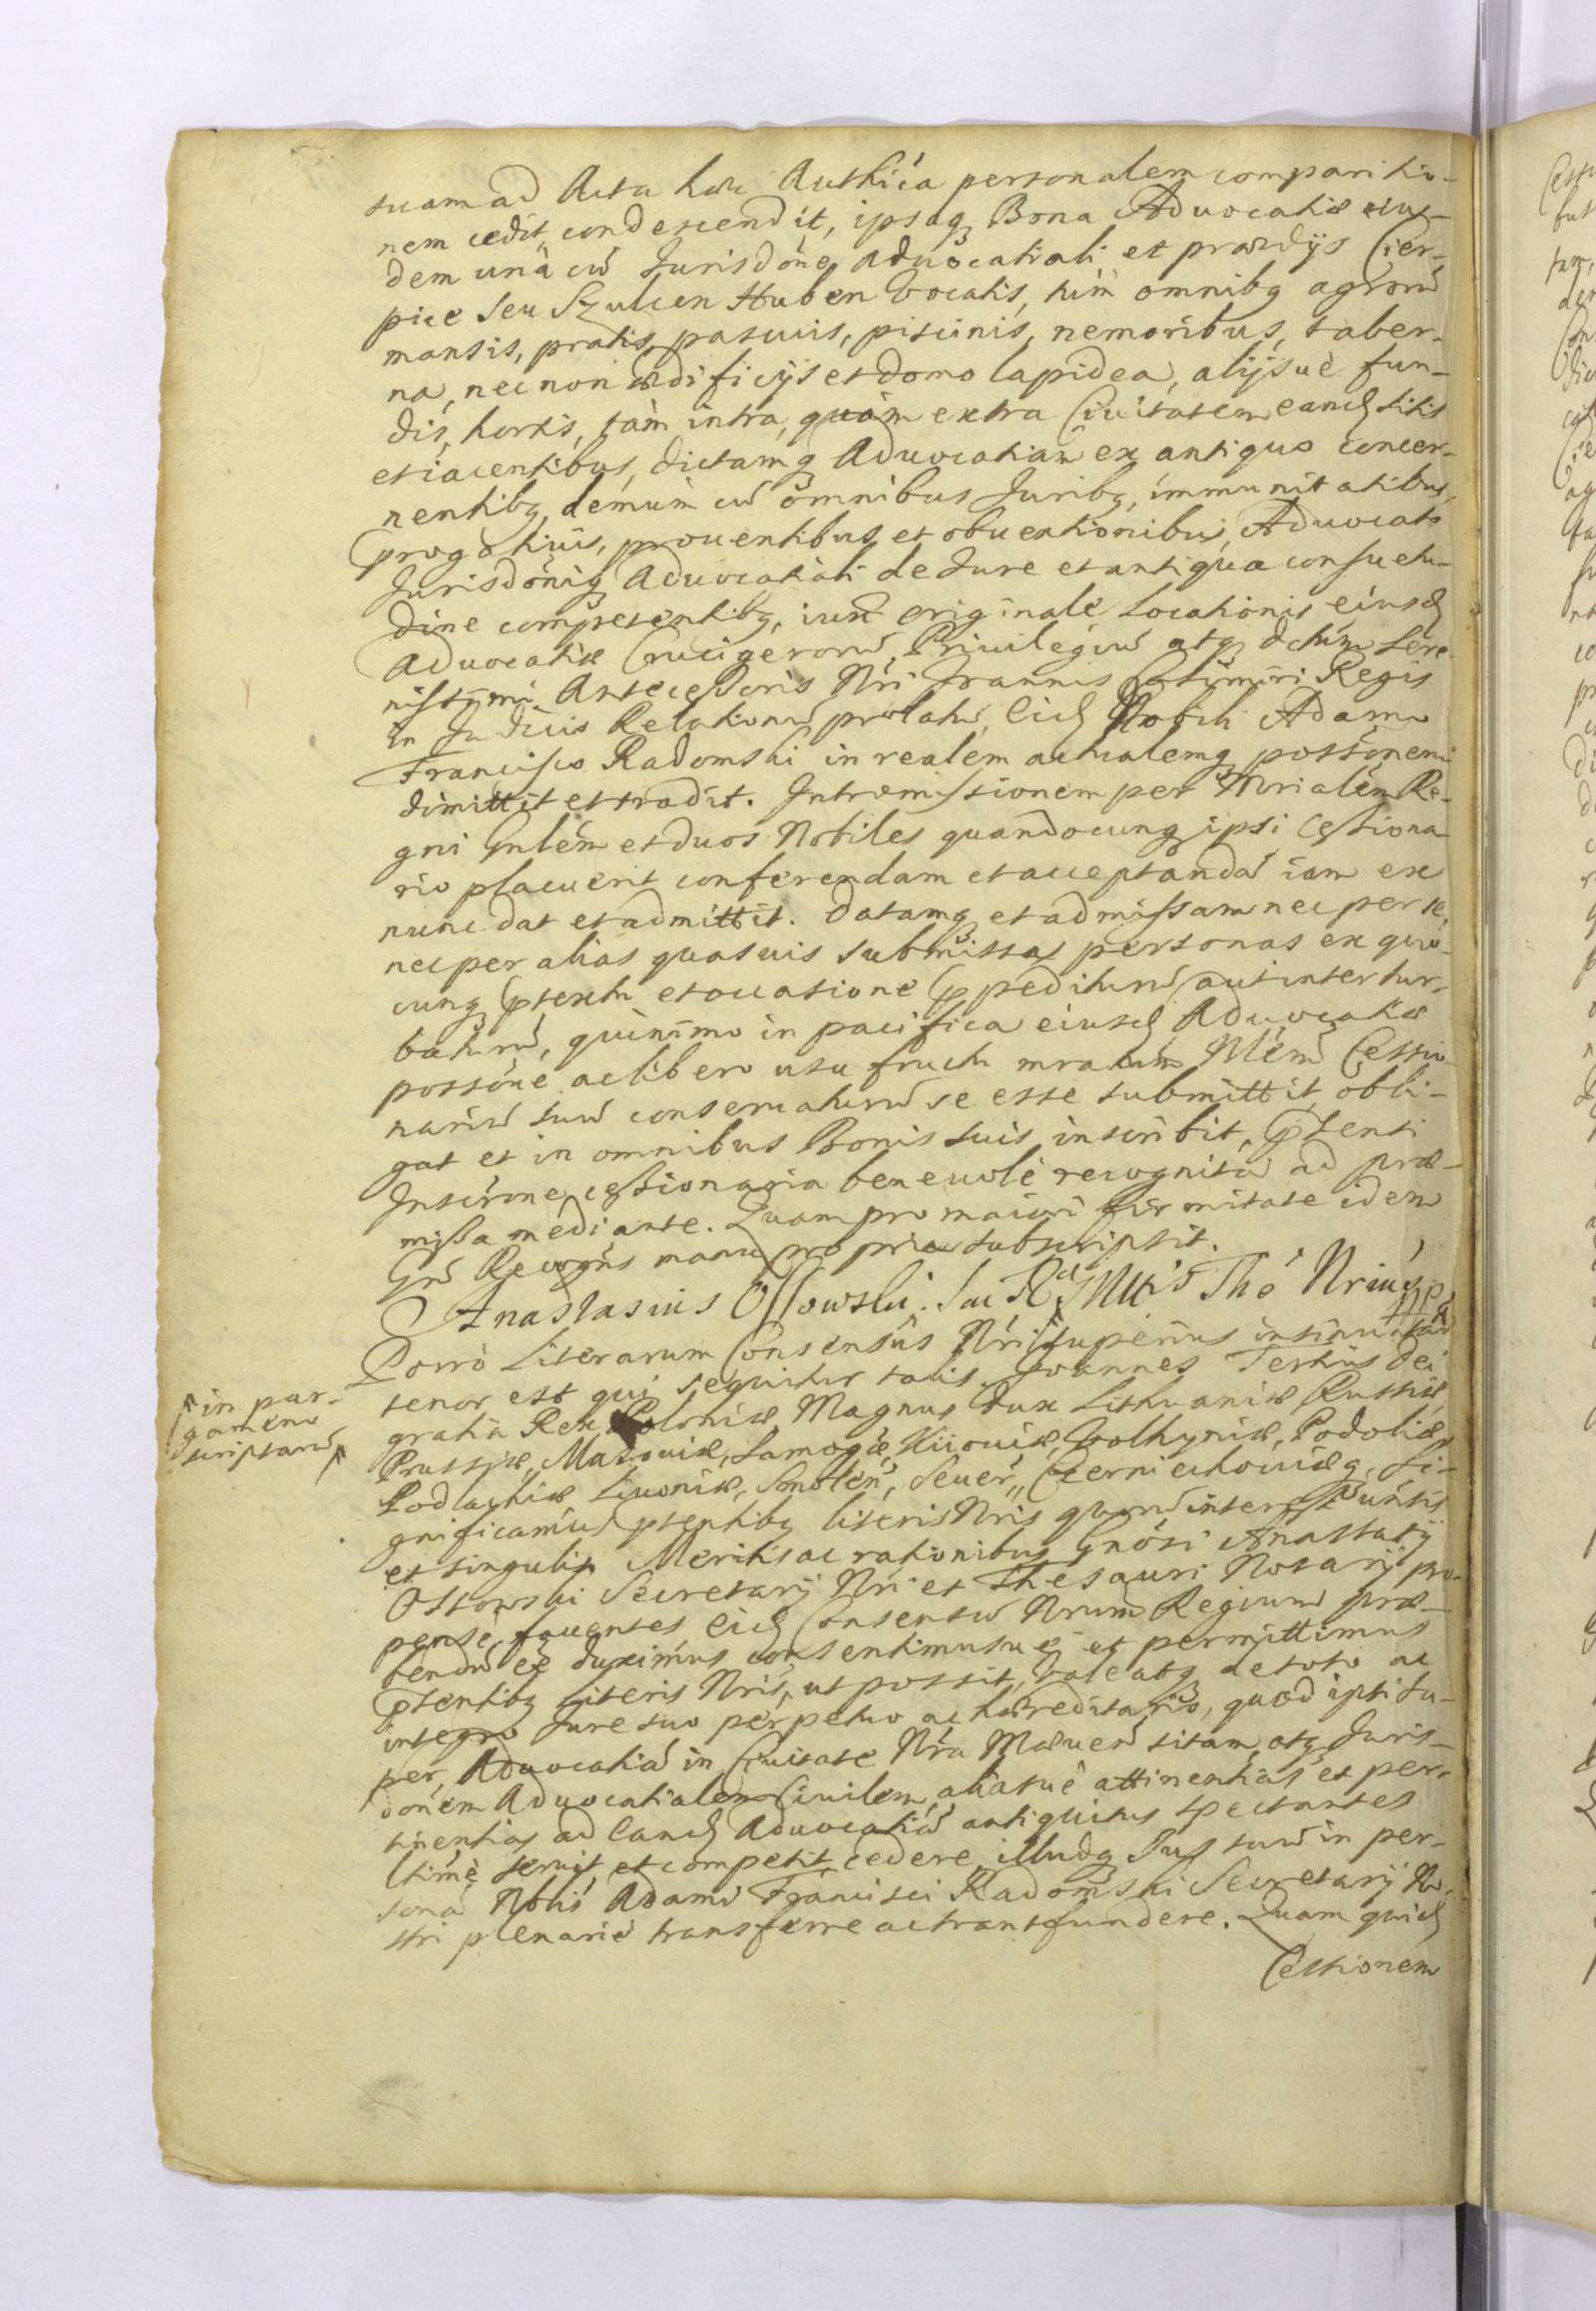 suam ad Acta haec Authca personalem comparitio-
nem cedit, condescendit, ipsaq Bona Advocatiæ eius-
dem unà cu Jurisdone Advocatiali et prædÿs Cier-
pice seu Szulcen Huben vocatis, tum omnibq agroru
mansis, pratis, pascuis, piscinis, nemoribus, taber-
na, necnon ædificÿs et domo lapidea, alÿsuè fun-
dis, hortis, tàm intra, quàm extra Ciuitatem eand sitis
et iacentibus, dictamq Aduocatiam ex antiquo concer-
nentibq, demùm cu omnibus Juribq, immunitatibus,
prærogatiuis, prouentibus et obuentionibus, Aduocato
Jurisdoniq Aduocatiali de Jure et antiqua consuetu-
dine competentibq, iuxt originale Locationis eiusd
Aduocatiæ Crucigeroru Priuilegiu atq dctum Sere-
nissimi Antecessoris Nri Joannis Casimiri Regis
in Judicis Relationu prolatu, eid Nobili Adamo
Francisco Radomski in realem actualemq possonem
dimittit et tradit. Intromissionem per Mrialem Re-
gni Gnlem et duos Nobiles quandocunq ipsi Cessiona-
rio placuerit conferendam et acceptanda iam ex
nunc dat et admittit. Datamq et admissam nec per se,
nec per alias quasuis submissas personas ex quo-
cunq ptextu et occasione ppediturum aut intertur-
baturu, quinimo in pacifica eiusd Aduocatiæ
possone ac libero usu fructu mratum Nlem Cessio-
nariu suu conseruaturu se esse submittit, obli-
gat et in omnibus Bonis suis inscribit, pnsenti
Inscrone cessionaria beneuolè recognita ad præ-
missa mediante. Quam pro maiori firmitate idem
Gns Recogns manu propria subscripsit.
Anastasius Ossowski. Sac R Mtis The Nrius mp
Porrò Literarum Consensûs Nri superius insinuatar
tenor est qui sequitur talis. Joannes Tertius Dei
gratia Rex Poloniæ, Magnus Dux Lithuaniæ, Russiæ
Prussiæ, Masouiæ, Samogiæ, Kiiouiæ, Volhyniæ, Podoliæ,
Podlachiæ, Liuoniæ, Smolen, Seuer, Czerniechouiæq. Si-
gnificamus pntentibq literis Nris quoru interest uniusis
et singulis. Meritis ac rationibus Gnosi Anastasÿ
Ossowski Secretarÿ Nri et Thesauri Notarÿ pro-
pense fauentes eid Consensu Nrum Regium præ-
bendu eê duximus consentimusuè et permittimus
pntentibq Literis Nris, ut possit, valeatq de toto ac
integro Jure suo perpetuo ac hæreditario, quod ipsi su-
per Aduocatia in Ciuitate Nra Mæuen sitam, atq Juris-
donem Aduocatialem Ciuilem, aliasuè attinentias et per-
tinentias ad eand Aduocatia antiquitus spectantes
ltimè seruit, et competit, cedere, illudq Jus suu in per-
sona Nblis Adami Francisci Radomski Secretarÿ No-
stri plenariè transferre ac transfundere. Quam quid
Cessionem
in par-
gameno
scriptaru